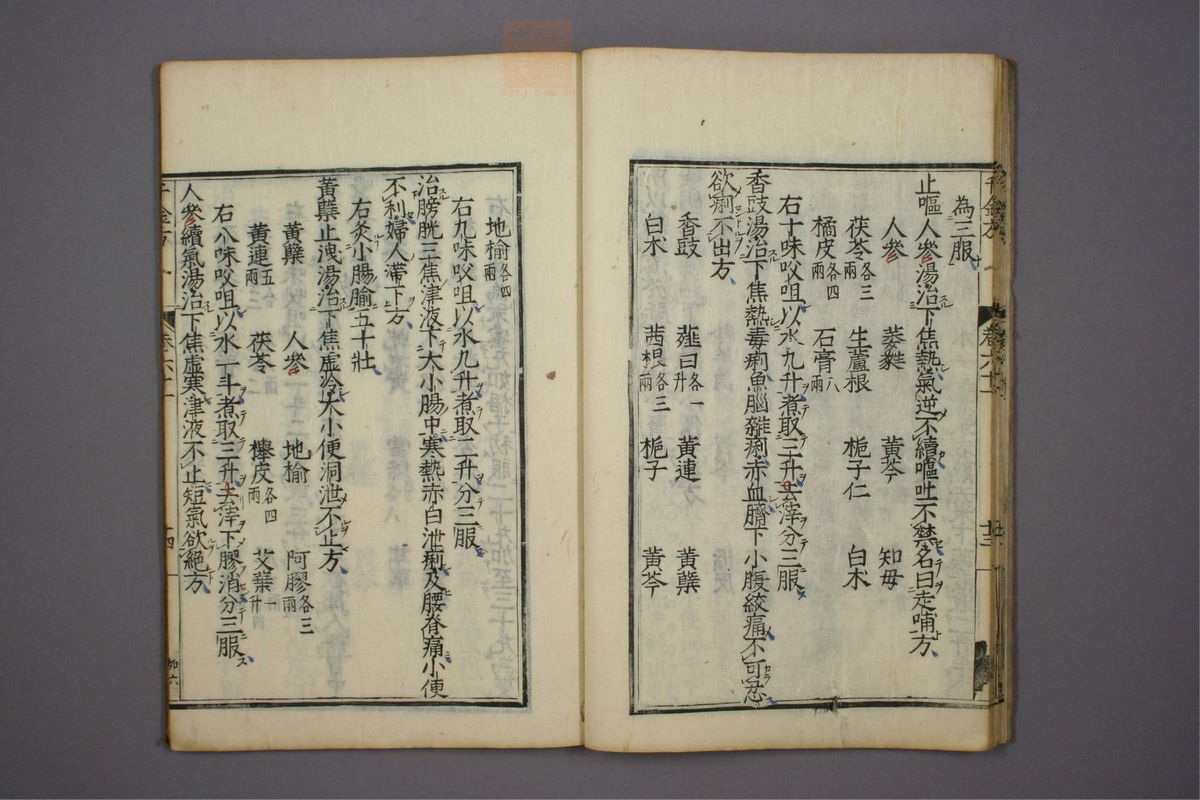 為三服
止嘔人參湯治下焦熱氣逆不續嘔吐不禁名曰走哺方
人參 萎蕤 黃芩 知母
茯苓各三兩 生蘆根 梔子仁 白朮
橘皮各四兩 石膏八兩
右十味㕮咀以水九升煮取三升去滓分三服
香豉湯治下焦熱毒痢魚腦雜痢赤血臍下小腹絞痛不可忍
欲痢不出方
香豉 薤白各一升 黃連 黃蘗
白朮 茜根各三兩 梔子 黃芩
地榆各四兩
右九味㕮咀以水九升煮取二升分三服
治膀胱三焦津液下大小腸中寒熱赤白泄痢及腰脊痛小便
不利婦人滯下方
右灸小腸腧五十壯
黃蘗止洩湯治下焦虛冷大小便洞泄不止方
黃蘗 人參 地榆 阿膠各三兩
黃連五兩 茯苓 櫸皮各四兩 艾葉一升
右八味㕮咀以水一斗煮取三升去滓下膠消分三服
人參續氣湯治下焦虛寒津液不止短氣欲絕方
千金方